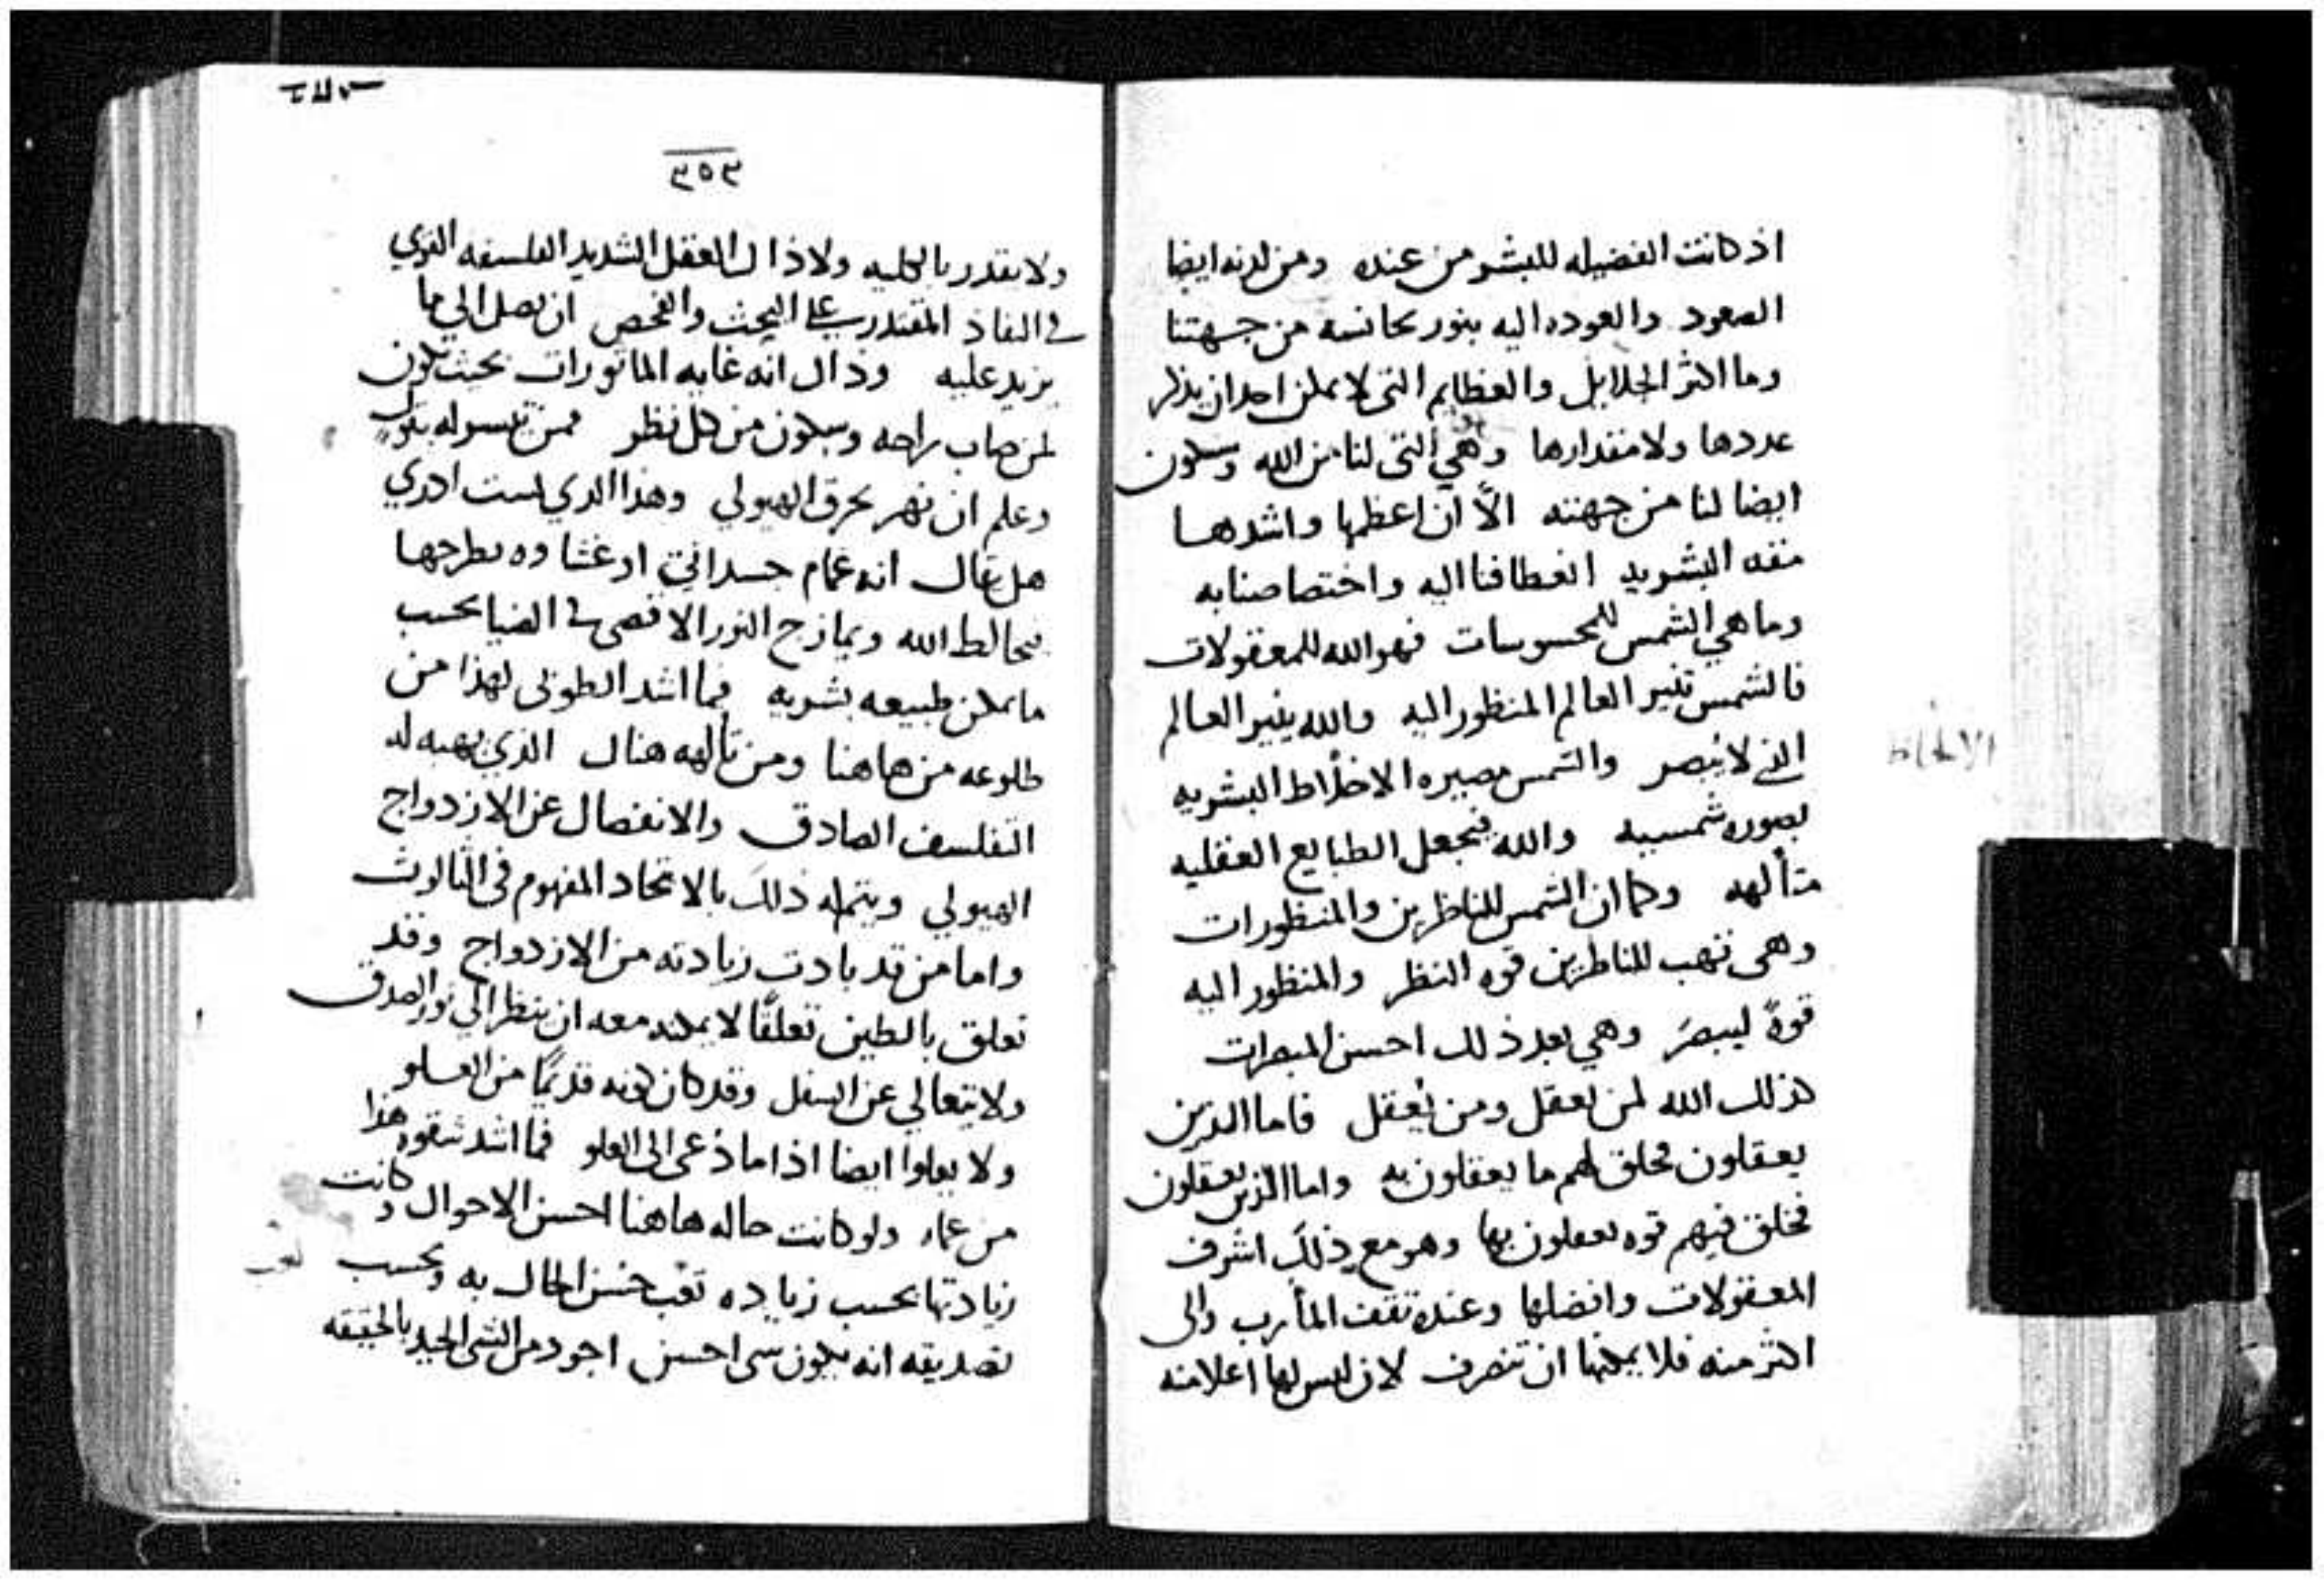 اذ كانت الفضيله للبشر من عنده ومن لدنه ايضا
الصعود والعوده اليه بنور مجانسه من جهتنا
وما اكثر الجلايل والعظايم التي لا يمكن احد ان يذكر
عددها ولا مقدارها وهي التي لنا من الله وستكون
ايضا لنا من جهته الا ان اعظمها واشدها
البشريه انعطافنا اليه واختصاصنا به
وما هي الشمس للمحسوسات فهو الله للمعقولات
فالشمس تنير العالم المنظور اليه والله ينير العالم
الذي لا يبصر والشمس مصيره الالحاظ البشريه
بصوره شمسيه والله فيجعل الطبايع العقليه
متألهه وكما ان الشمس للناظرين والمنظورات
وهي تهب للناظرين قوه النظر والمنظور اليه
قوةً ليبصرَ وهي بعد ذلك احسن المبصرات
كذلك الله لمن يعقل ومن يُعقل فاما الذين
يعقلون فخلق لهم ما يعقلون به واما الذين يعقلون
فخلق فيهم قوه يعقلون بها وهو مع ذلك اشرف
المعقولات وافضلها وعنده تقف المأرب والى
اكثر منه فلا يمكنها ان تنصرف لان ليس لها اعلا منه
الالحاظ
٣٥٣
ولا يقدر بالكليه ولا ذاك العقل الشديد الفلسفه القوي
في النفاذ المقتدر على البحث والفحص ان يصل الي ما
يزيد عليه وذاك انه غايه الماثورات بحيث يكون
لمن صاب راحه وسكون من كل نظر فمن تيسر له
وعلم ان نهر يحرق الهيولي وهذا الذي لست ادري
هل يقال انه غمام جسداني او غشاوه يطرحها
فيخالط الله ويمازج النور الاقصى في الضيا بحسب
ما يمكن طبيعه بشريه فما اشد الطوبى لهذا من
طلوعه من هاهنا ومن تألهه هناك الذي يهبه له
التفلسف الصادق والانفصال عن الازدواج
الهيولي ويتم له ذلك بالاتحاد المفهوم في الثالوث
واما من قد بادت زيادته من الازدواج وقد
تعلق بالطين تعلقًا لا يمكنه معه ان ينظر الي نور الصدق
ولا يتعالي عن السفل وقد كان كونه قديمًا من العلو
ولا يعلوا ايضا اذا ما دُعي الى العلو فما اشد شقوه هذا
من عماه ولو كانت حاله هاهنا احسن الاحوال وكانت
زيادتها بحسب زياده تعب حسن الحال به وبحسب
تصديقه انه يكون شي احسن اجود من الشي الجيد بالحقيقه